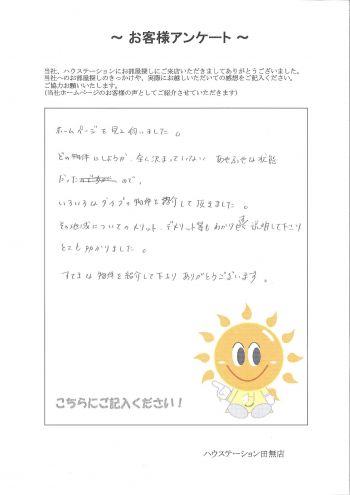 ～ お客様アンケート ～
当社、ハウステーションにお部屋探しにご来店いただきましてありがとうございました。
当社へのお部屋探しのきっかけや、実際にお越しいただいての感想をご記入ください。
ご協力お願いいたします。
(当社ホームページのお客様の声としてご紹介させていただきます)
ホームページを見て伺いました。
どの物件にしようか、全く決まっていない あやふやな状態
だった ので、
いろいろなタイプの物件を紹介して頂きました。
その地域についてのメリット、デメリット等もわかり易く説明して下さり
とても助かりました。
すてきな物件を紹介して下さり ありがとうございます。
こちらにご記入ください！
ハウステーション田無店